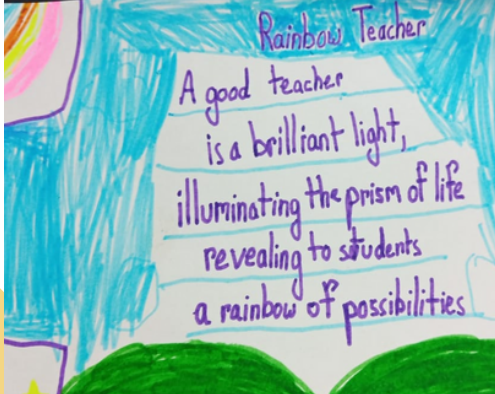 Rainbow Teacher
A good teacher
is a brilliant light,
illuminating the prism of life
revealing to students
a rainbow of possibilities